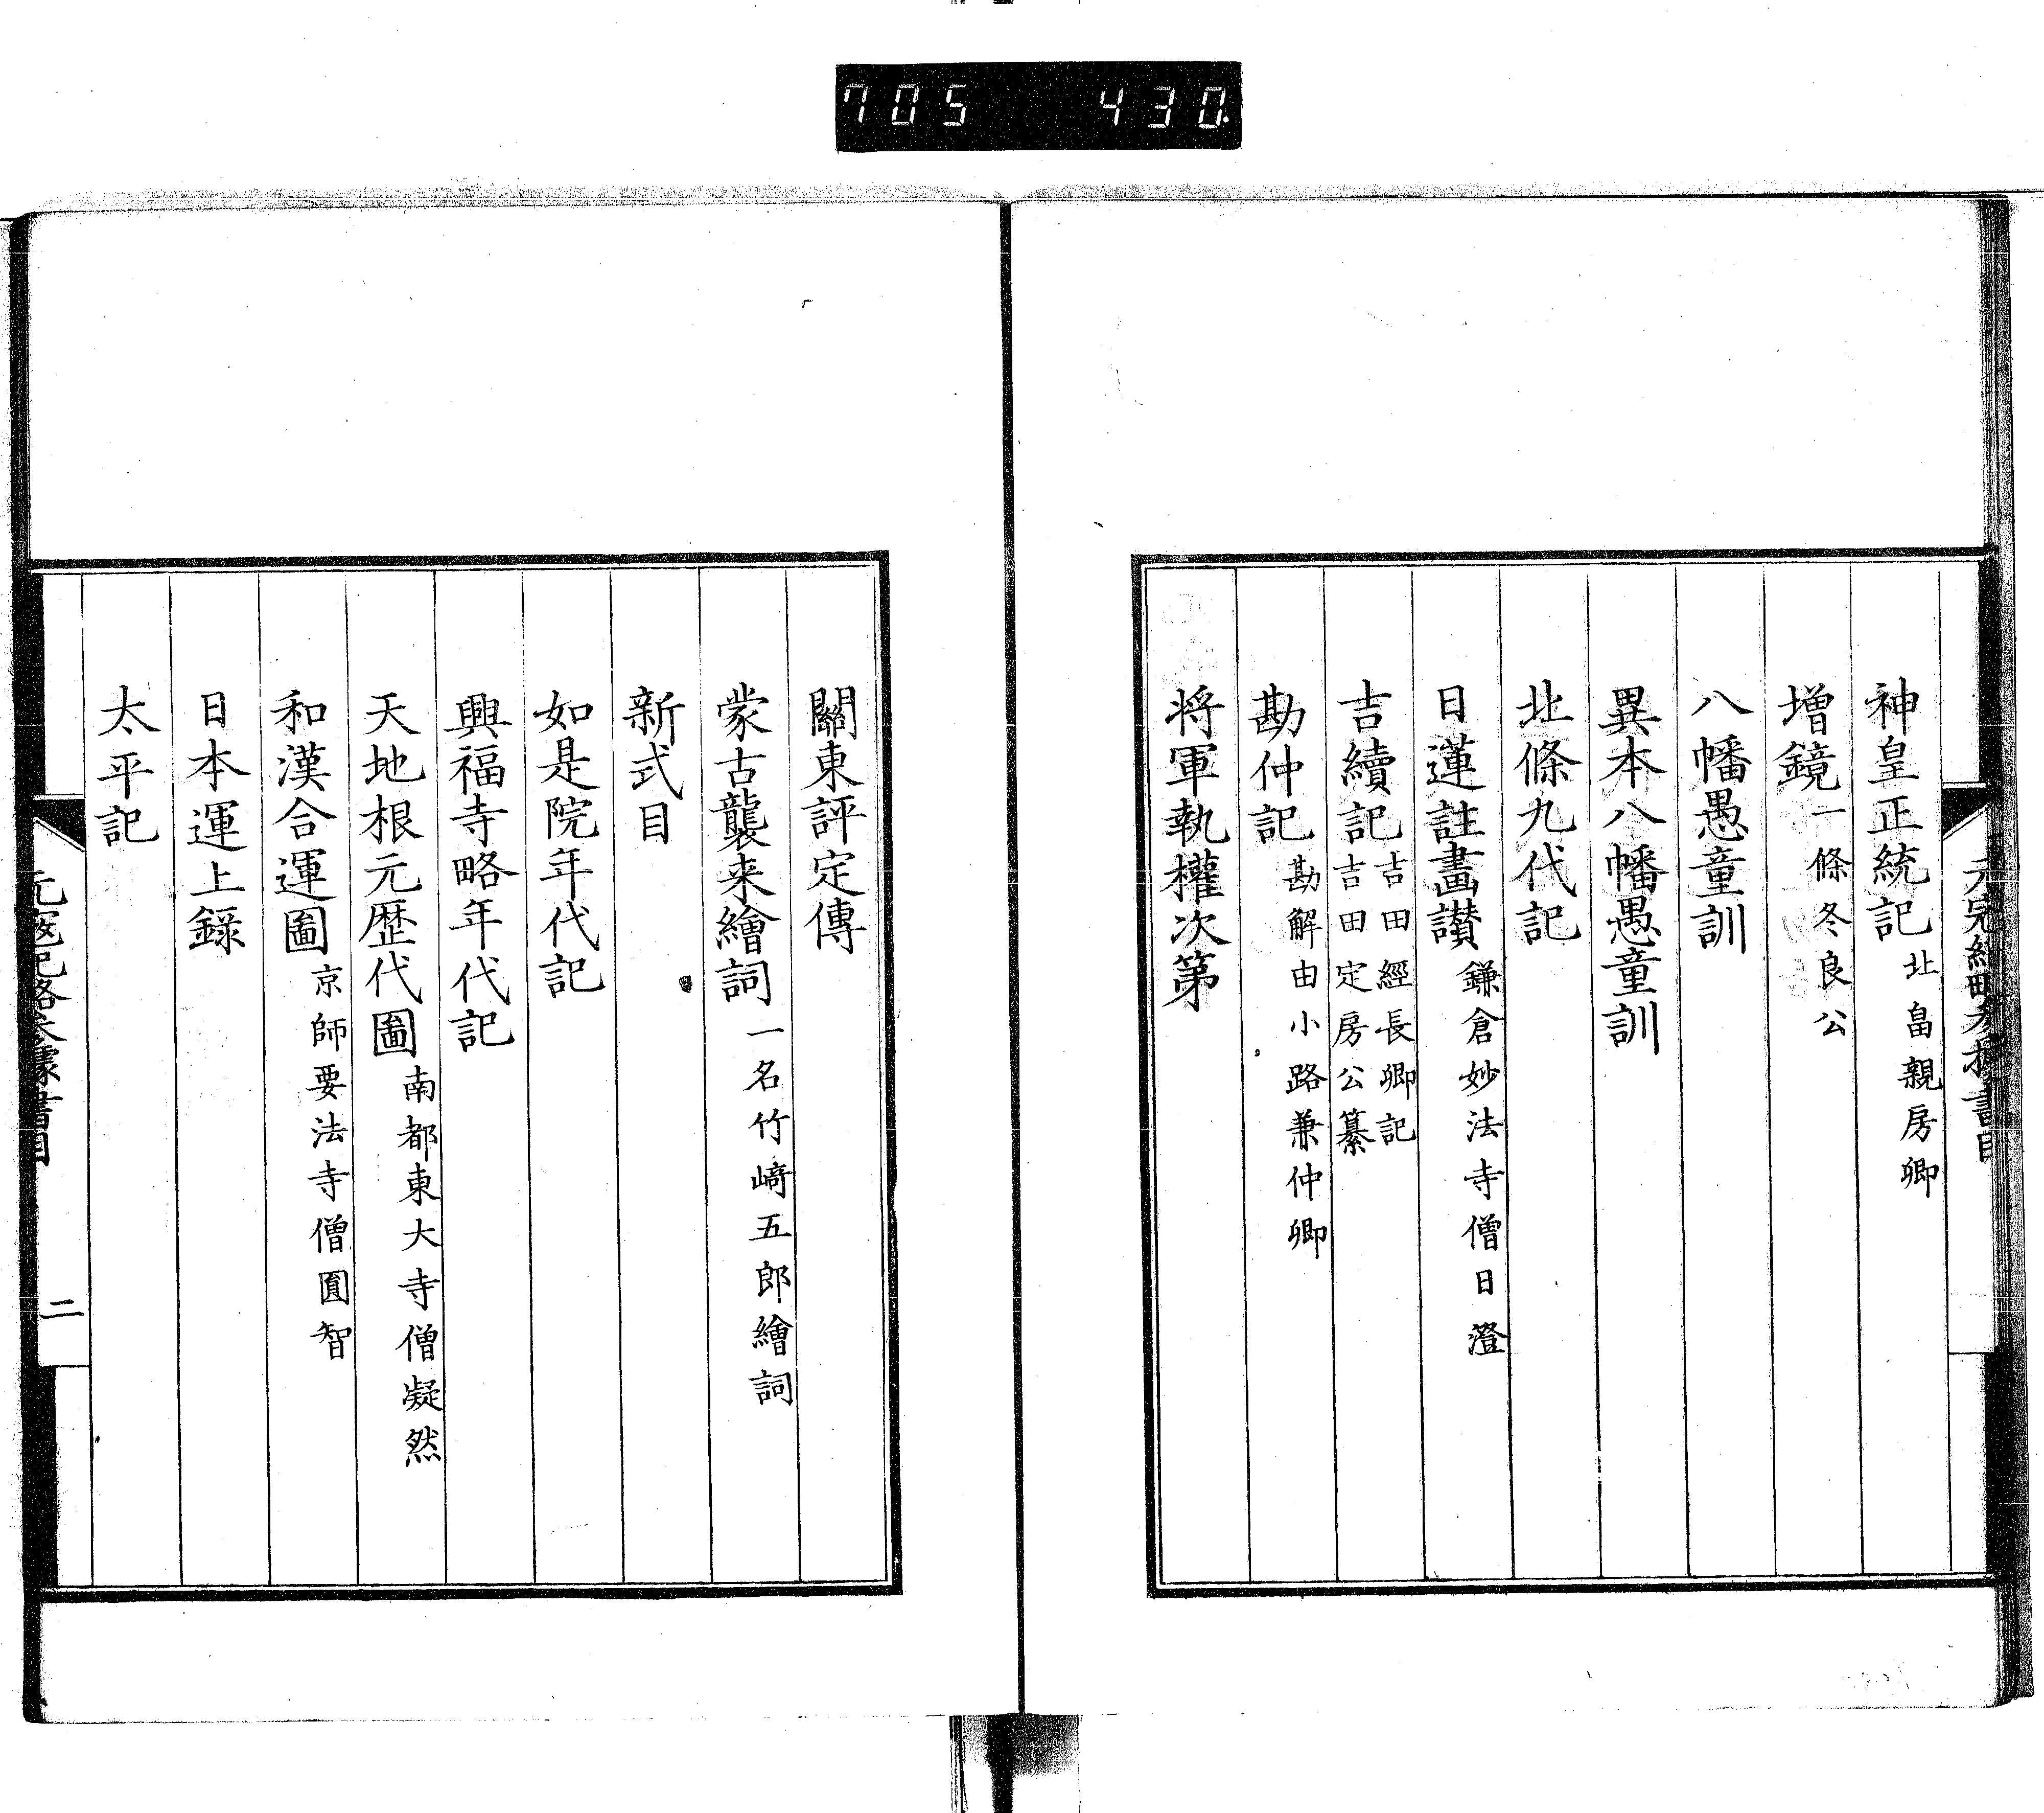 705 430.
神皇正統記 北畠親房卿
増鏡 一條冬良公
八幡愚童訓
異本八幡愚童訓
北條九代記
日蓮註畫讃 鎌倉妙法寺僧日澄
吉續記 吉田經長卿記 吉田定房公纂
勘仲記 勘解由小路兼仲卿
将軍執權次第
關東評定傳
蒙古襲来繪詞 一名竹﨑五郎繪詞
新式目
如是院年代記
興福寺略年代記
天地根元歴代圖 南都東大寺僧凝然
和漢合運圖 京師要法寺僧圓智
日本運上錄
太平記
元寇紀略参據書目 二